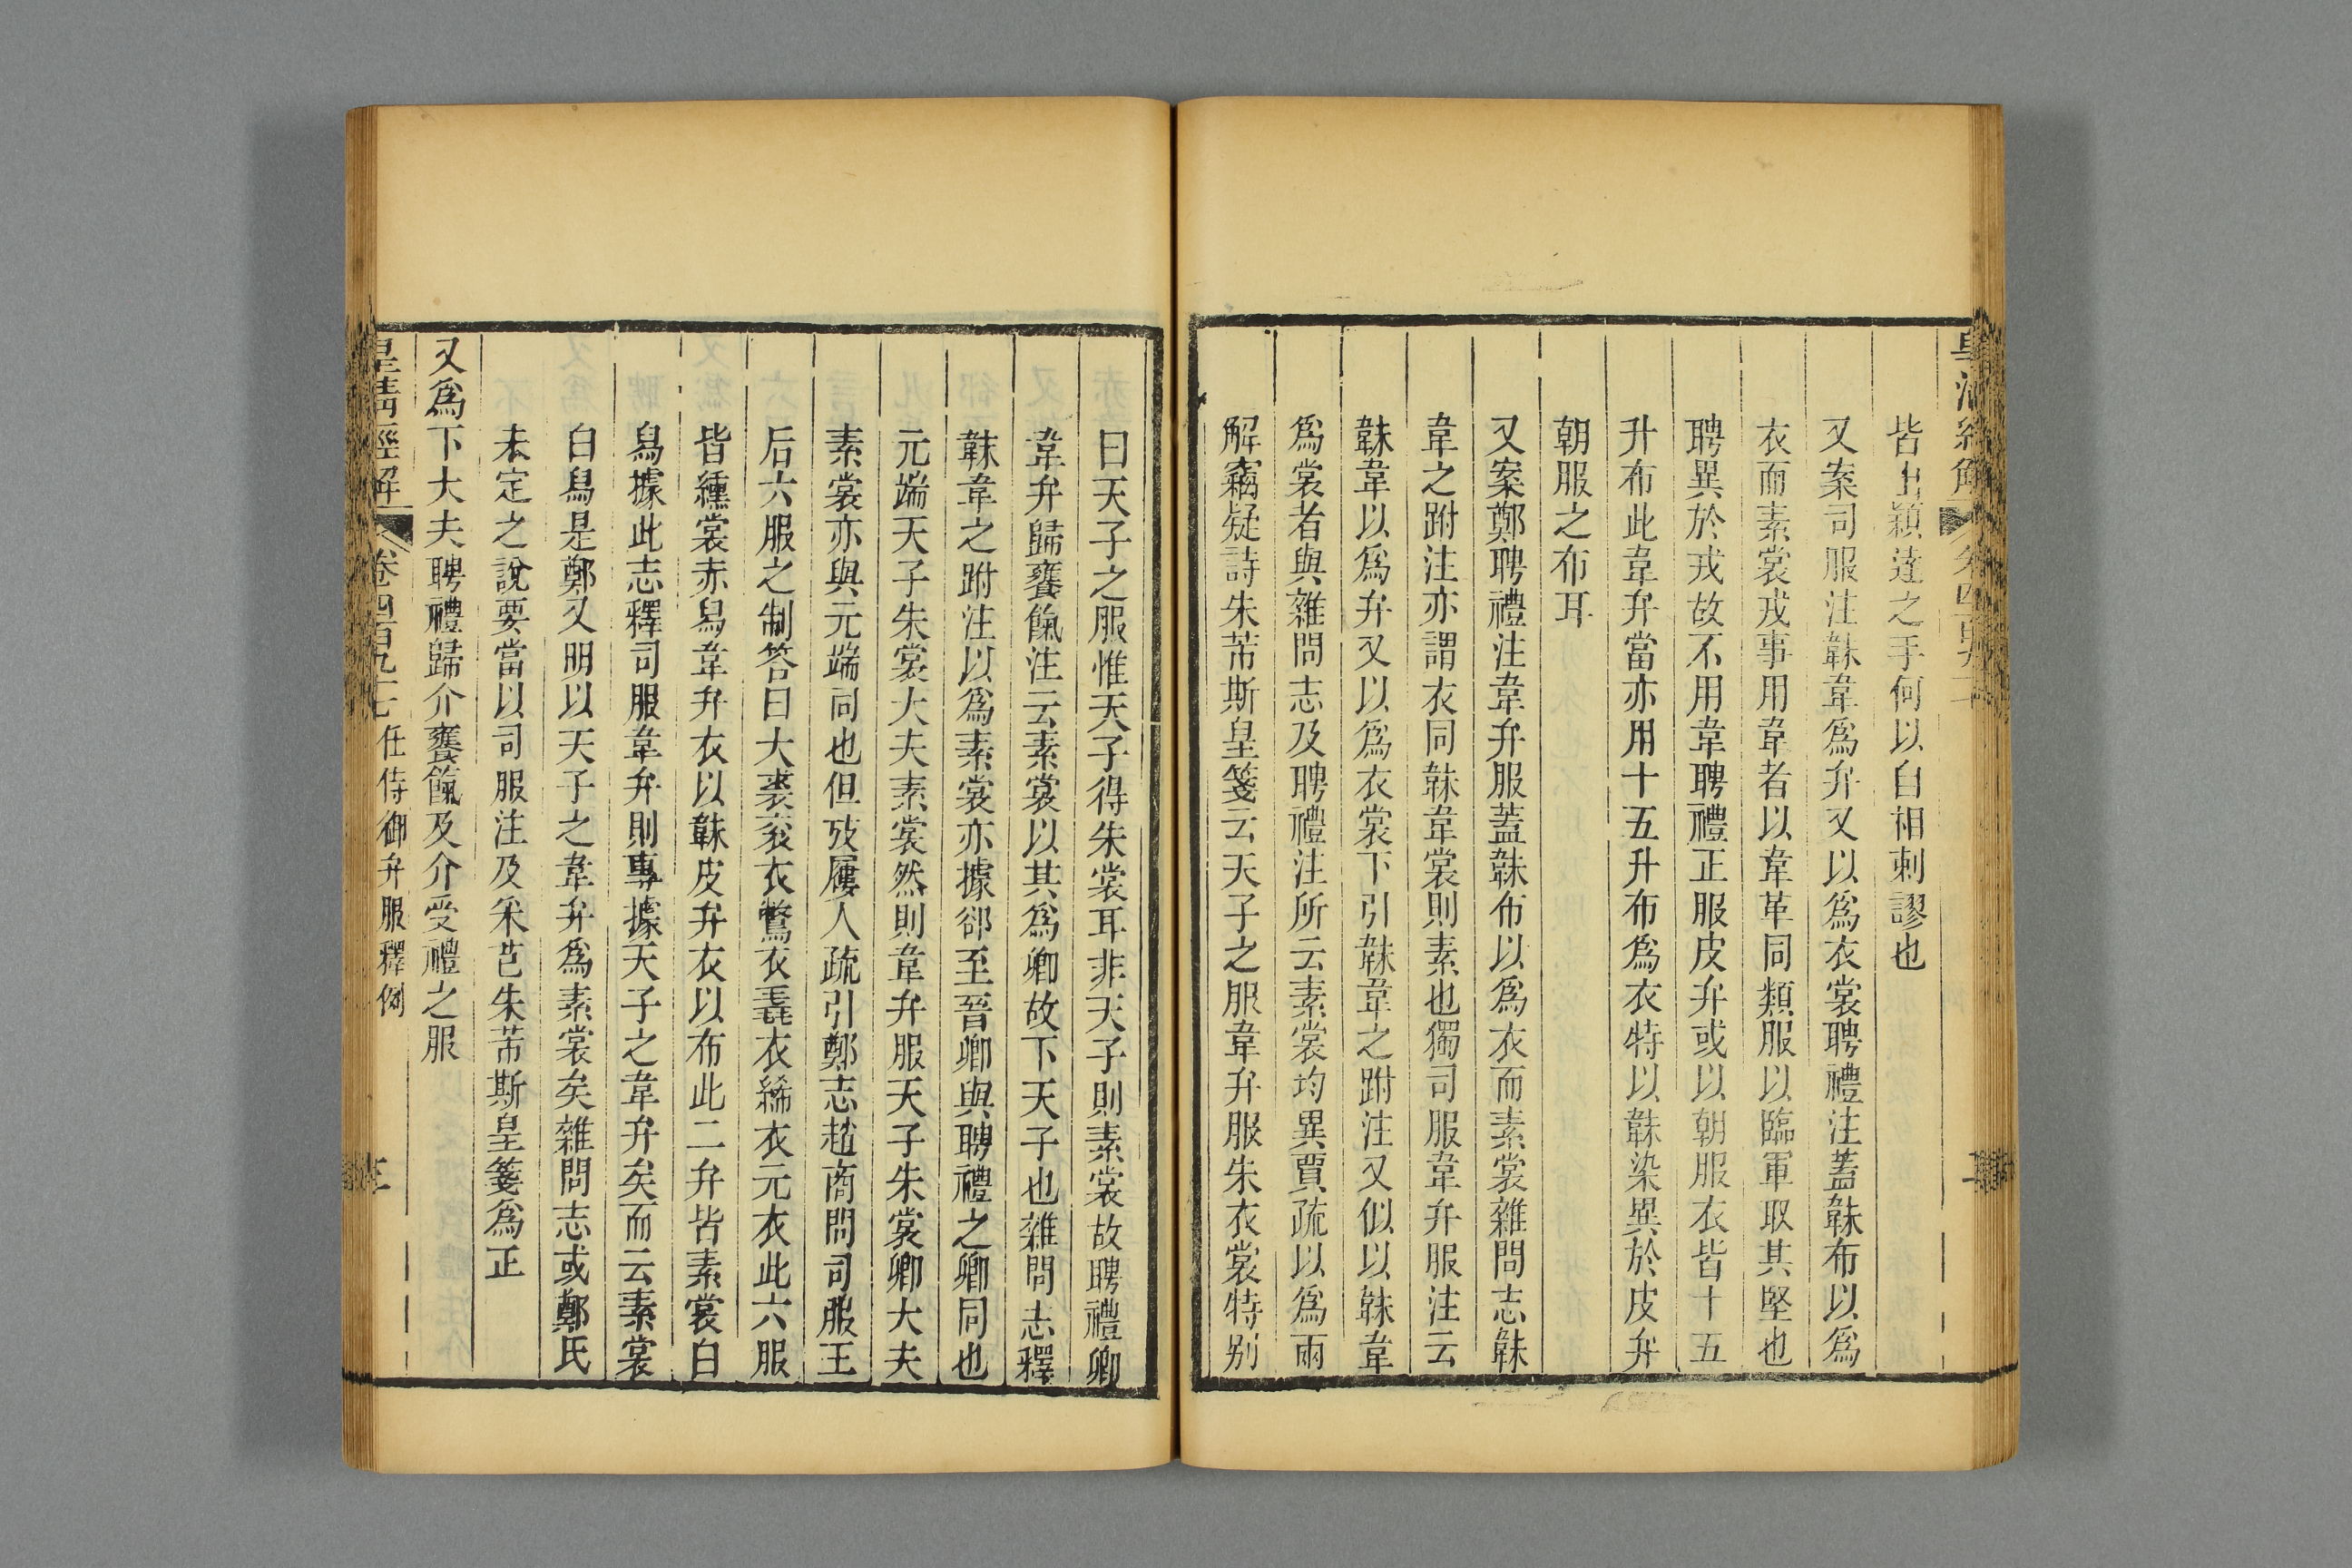 皆出穎達之手何以自相刺謬也
又案司服注韎韋爲弁又以爲衣裳聘禮注蓋韎布以爲
衣而素裳戎事用韋者以韋革同類服以臨軍取其堅也
聘異於戎故不用韋聘禮正服皮弁或以朝服衣皆十五
升布此韋弁當亦用十五升布爲衣特以韎染異於皮弁
朝服之布耳
又案鄭聘禮注韋弁服蓋韎布以爲衣而素裳雜問志韎
韋之跗注亦謂衣同韎韋裳則素也獨司服韋弁服注云
韎韋以爲弁又以爲衣裳下引韎韋之跗注又似以韎韋
爲裳者與雜問志及聘禮注所云素裳均異賈疏以爲兩
解竊疑詩朱芾斯皇箋云天子之服韋弁服朱衣裳特别
曰天子之服惟天子得朱裳耳非天子則素裳故聘禮卿
韋弁歸饔餼注云素裳以其爲卿故下天子也雜問志釋
韎韋之跗注以爲素裳亦據郤至晉卿與聘禮之卿同也
元端天子朱裳大夫素裳然則韋弁服天子朱裳卿大夫
素裳亦與元端同也但攷屨人疏引鄭志趙商問司服王
后六服之制答曰大裘衮衣鷩衣毳衣絺衣元衣此六服
皆纁裳赤舄韋弁衣以韎皮弁衣以布此二弁皆素裳白
舄據此志釋司服韋弁則專據天子之韋弁矣而云素裳
白舄是鄭又明以天子之韋弁爲素裳矣雜問志或鄭氏
未定之說要當以司服注及采芑朱芾斯皇箋爲正
又爲下大夫聘禮歸介饔餼及介受禮之服
皇清經解 卷四百九十七 任侍御弁服釋例